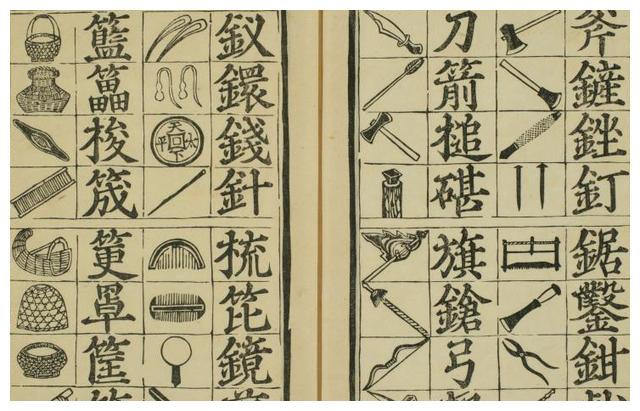 斧鏟銼釘鋸鑿鉗
刀箭槌碪旗鎗弓
釵鐶錢針梳笓鏡
天下太平
籃梭筬罩筐